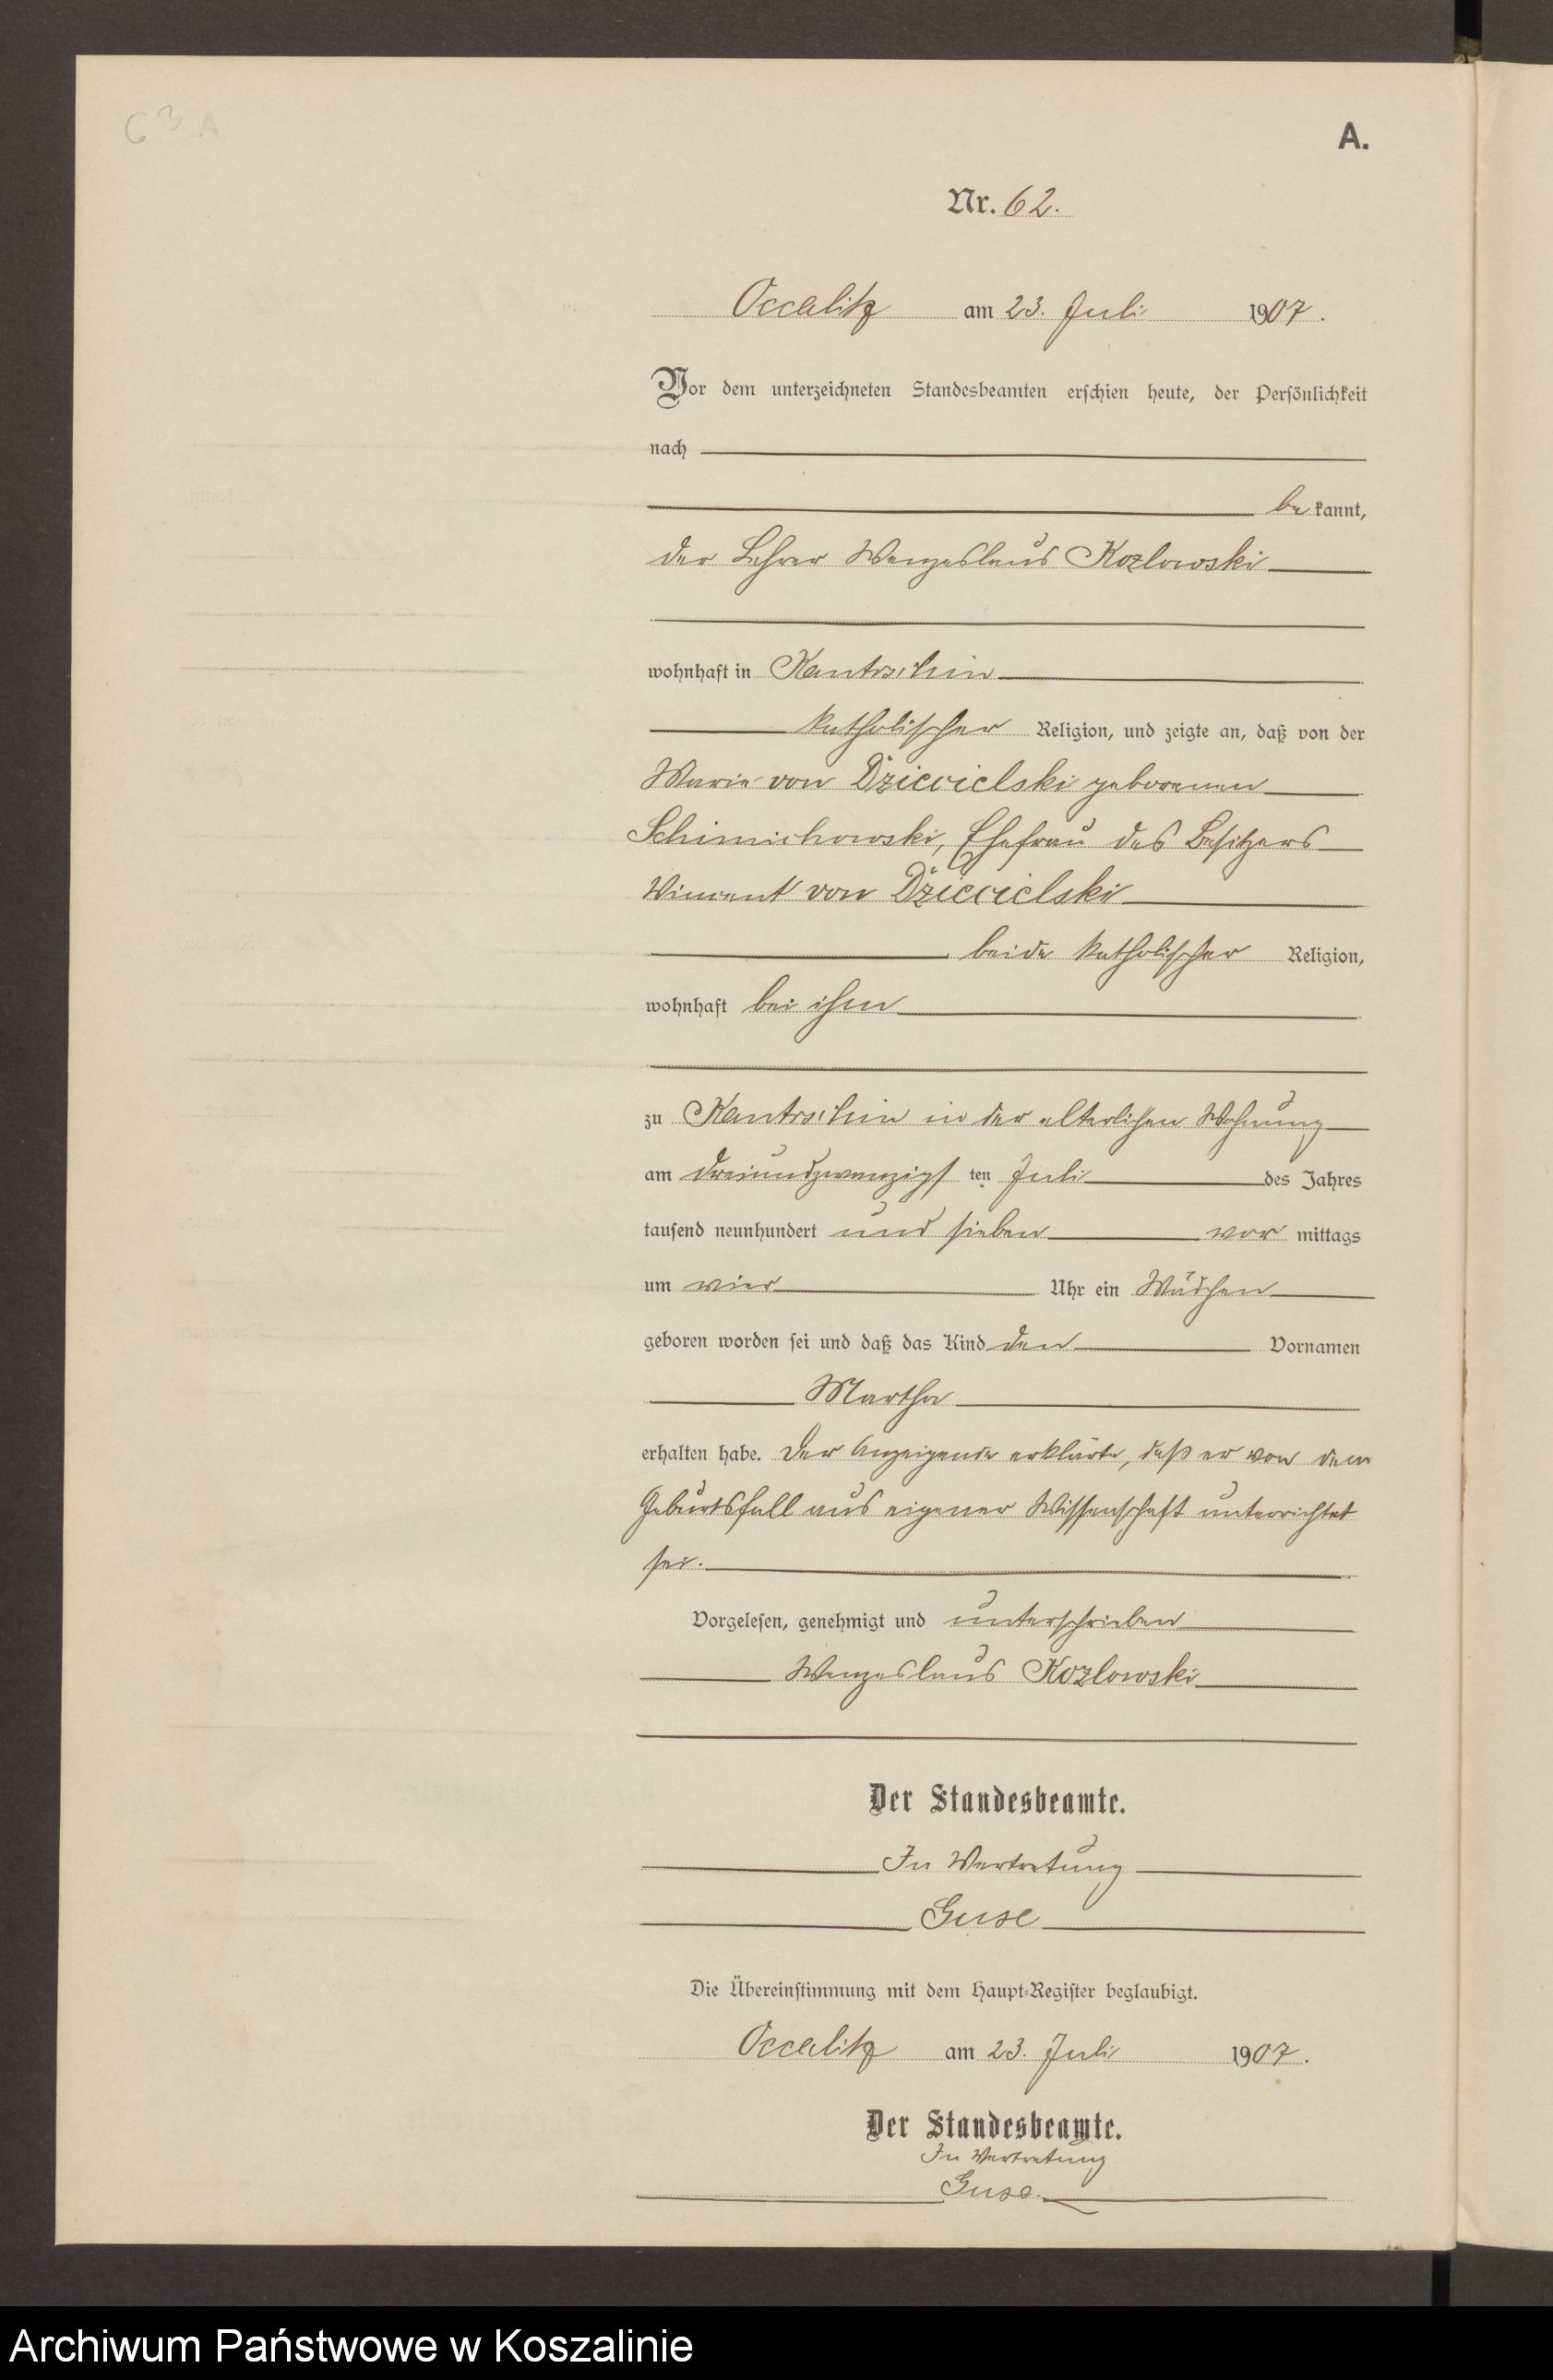 63 A
A.
Nr. 62.
Occalitz am 23. Juli 1907.
Vor dem unterzeichneten Standesbeamten erschien heute, der Persönlichkeit
nach
be kannt,
der Lehrer Wenzeslaus Kozlowski
wohnhaft in Kantrschin
katholischer Religion, und zeigte an, daß von der
Marie von geborenen
Ehefrau des Besitzers
von
beide katholischer Religion,
wohnhaft bei ihm
zu Kantrschin in der elterlichen Wohnung
am dreiundzwanzigsten Juli des Jahres
tausend neunhundert und sieben vor mittags
um vier Uhr ein Mädchen
geboren worden sei und daß das Kind den Vornamen
Martha
erhalten habe. Der Anzeigende erklärte, daß er von dem
Geburtsfall aus eigener Wissenschaft unterrichtet
sei.
Vorgelesen, genehmigt und unterschrieben
Wenzeslaus Kozlowski
Der Standesbeamte.
In Vertretung
Guse
Die Übereinstimmung mit dem Haupt-Register beglaubigt.
Occalitz am 23. Juli 1907.
Der Standesbeamte.
In Vertretung
Guse.
Archiwum Państwowe w Koszalinie